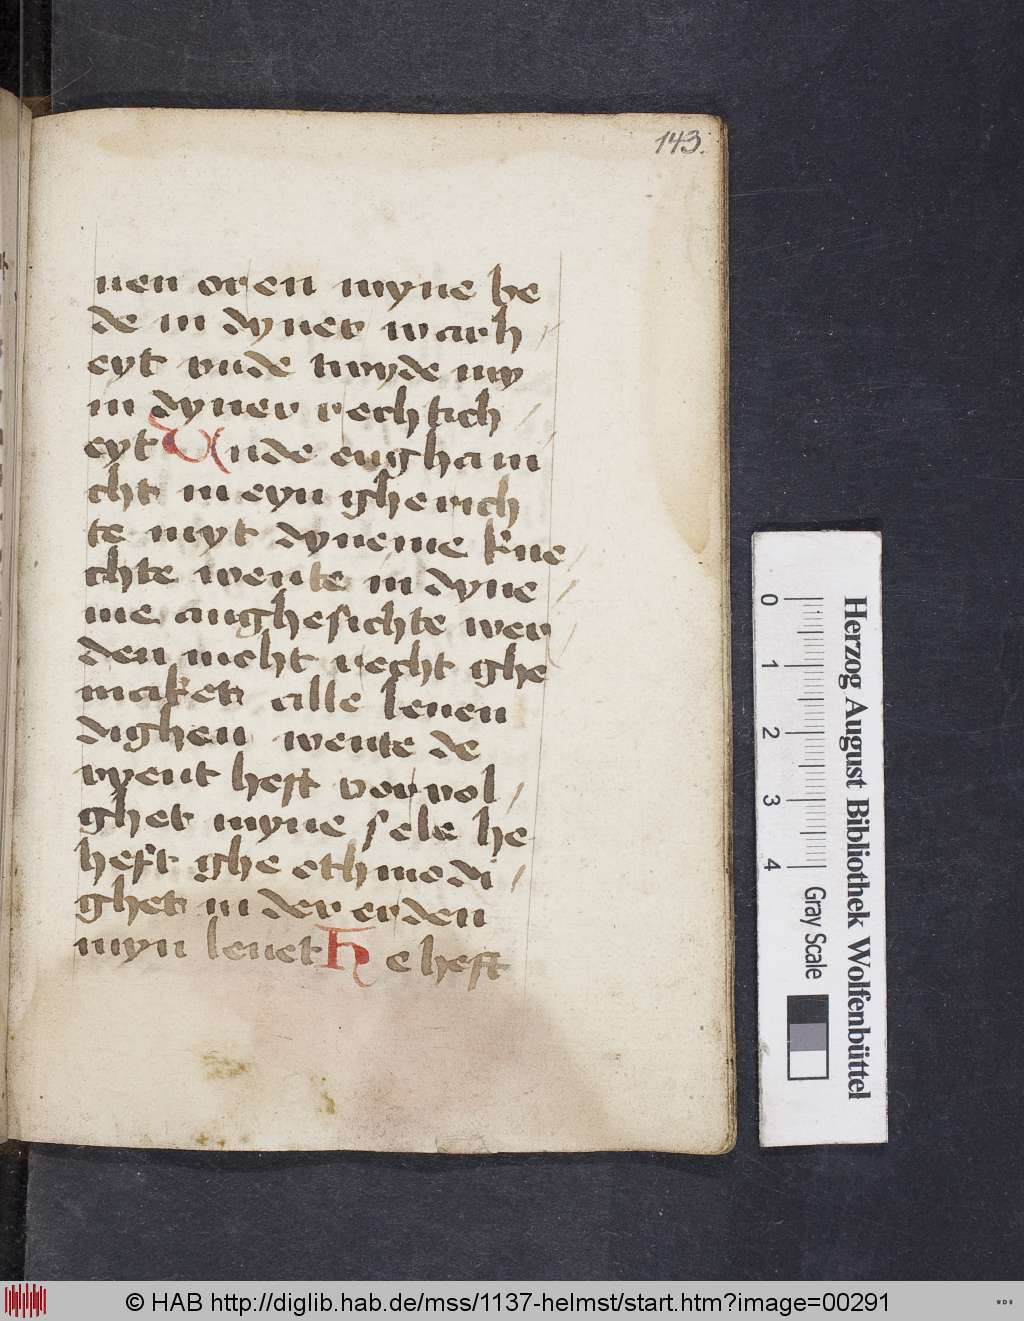 143.
nen oren myne be
de in dyner warh /
eyt vnde twyde my
in dyner rechtich /
eyt Vnde engha ni /
cht in eyn gherich
te myt dyneme kne /
chte wente in dyne /
me anghesichte wer /
den nicht recht ghe
maket alle leuen
dighen wente de
vyent heft vorvol /
ghet myne sele he
heft ghe othmodi /
ghet in der erden
myn leuet He heft
0 1 2 3 4
Gray Scale
Herzog August Bibliothek Wolfenbüttel
© HAB http://diglib.hab.de/mss/1137-helmst/start.htm?image=00291